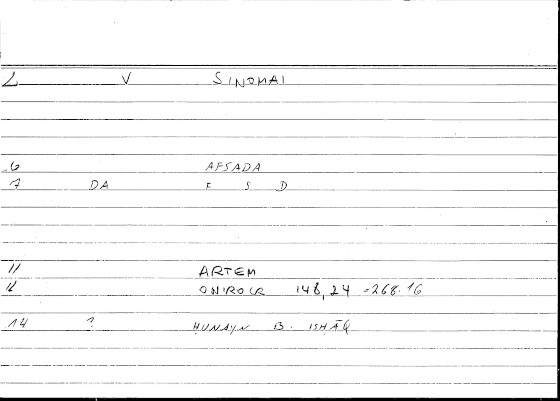 2 V SINOMAI
6 AFSADA
7 DA F S D
11 ARTEM
12 ONIROCR 148,24 = 268.16
14 ? ḤUNAYN B. ISḤĀQ